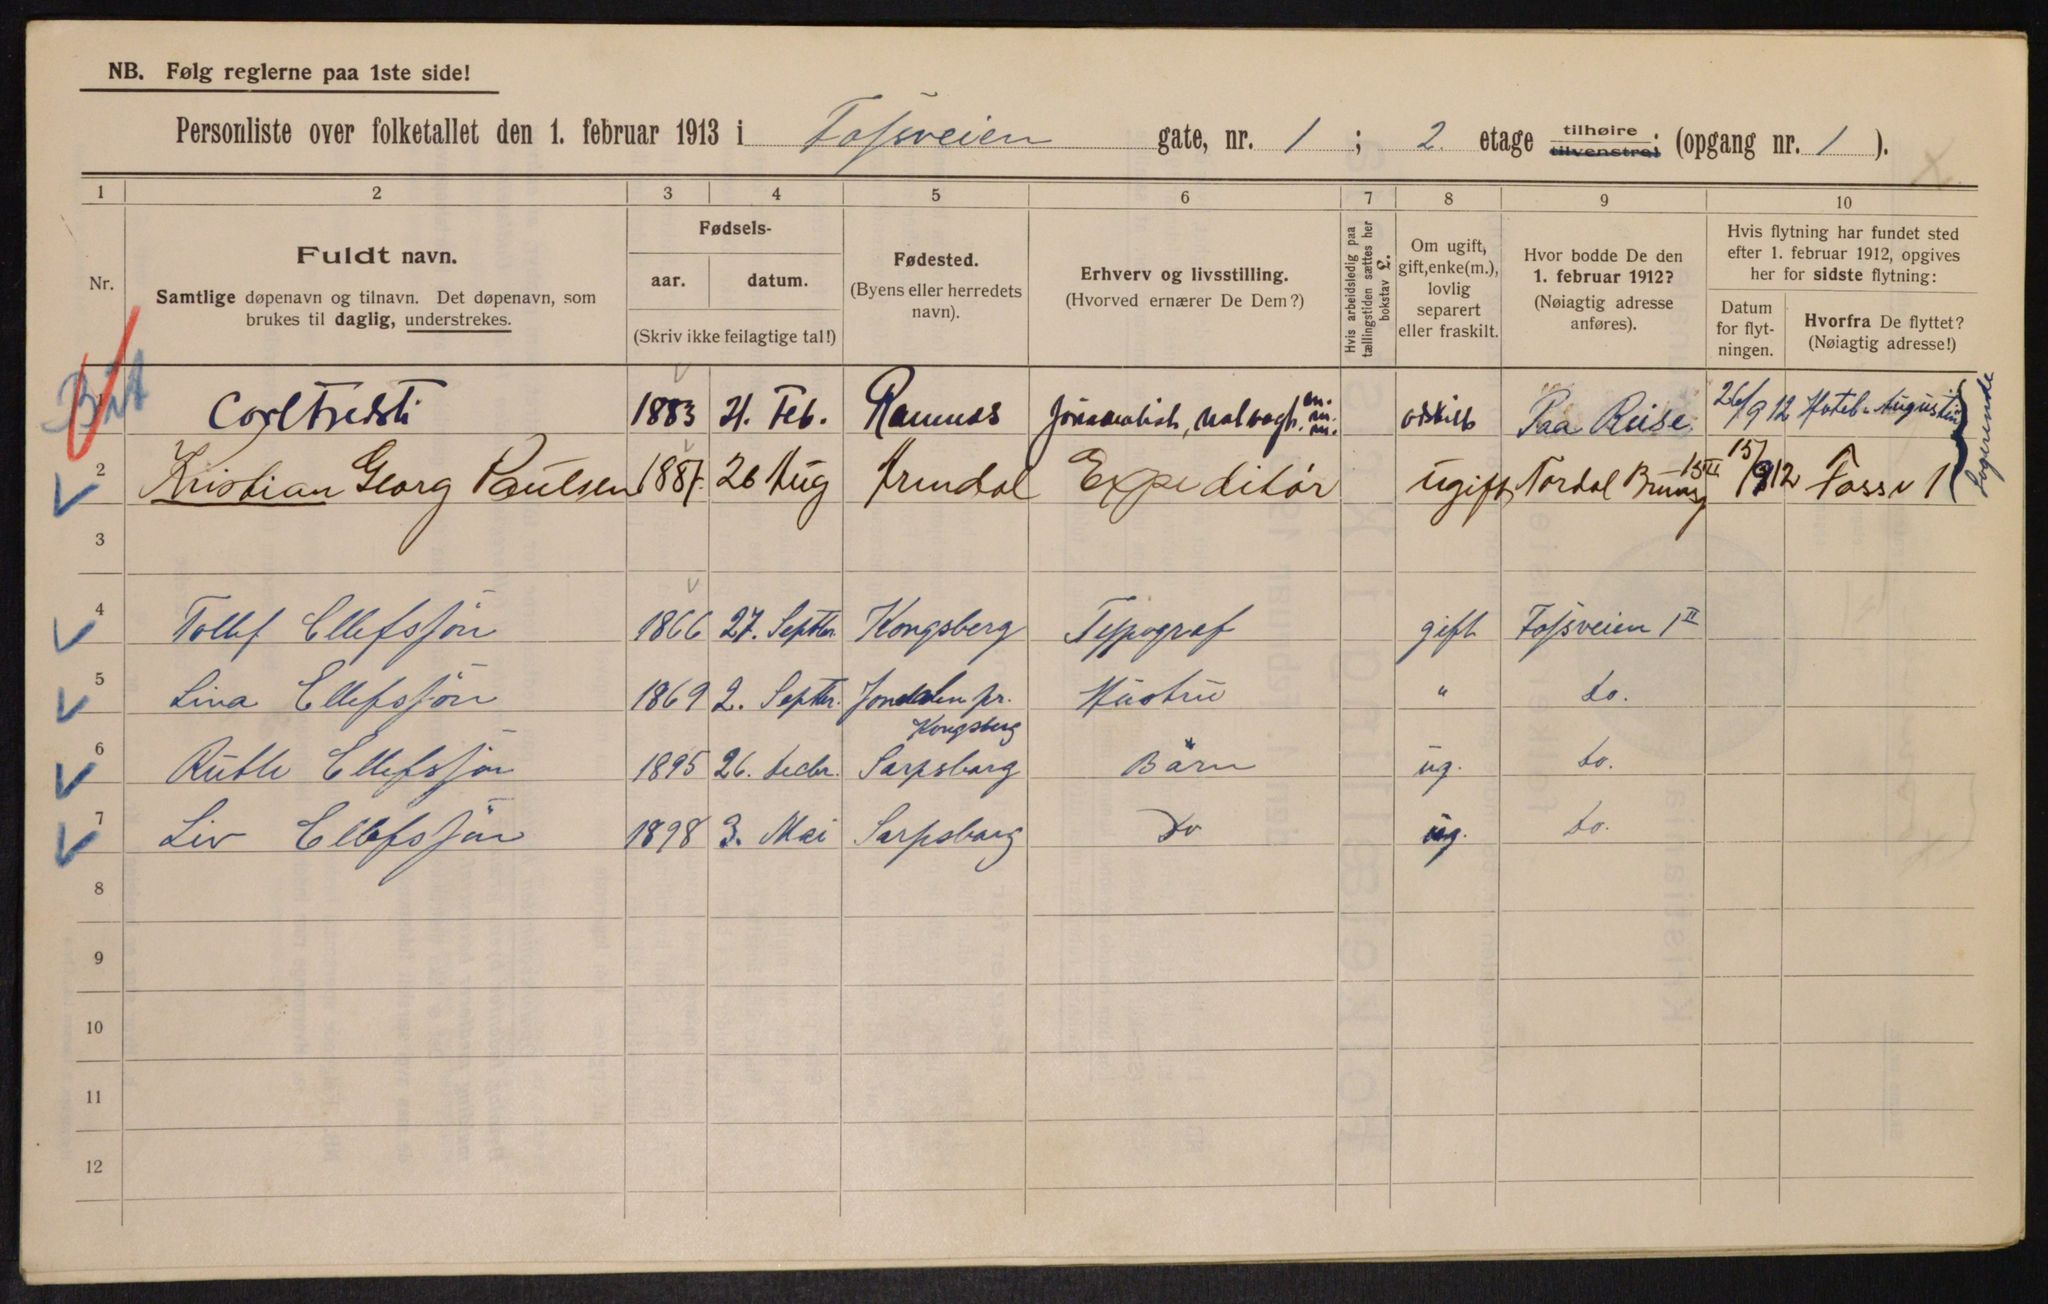 NB. Følg reglerne paa 1ste side!
Personliste over folketallet den 1. februar 1913 i Fossveien gate, nr. 1 ; 2. etage tilhøire tilvenstre; (opgang nr. 1 ).
1 2 3 4 5 6 7 8 9 10
Nr.
Fuldt navn.
Samtlige døpenavn og tilnavn. Det døpenavn, som
brukes til daglig, understrekes.
Fødsels-
aar. datum.
(Skriv ikke feilagtige tal!)
Fødested.
(Byens eller herredets
navn).
Erhverv og livsstilling.
(Hvorved ernærer De Dem?)
Hvis arbeidsledig paa
tællingstiden sættes her
bokstav £.
Om ugift,
gift, enke(m.),
lovlig
separert
eller fraskilt.
Hvor bodde De den
1. februar 1912?
(Nøiagtig adresse
anføres).
Hvis flytning har fundet sted
efter 1. februar 1912, opgives
her for sidste flytning:
Datum
for flyt-
ningen.
Hvorfra De flyttet?
(Nøiagtig adresse!)
1 1883 21. Feb. Journalist, m. m. m. Paa Reise 26/9 12 Hotel Augustin
2 Kristian Georg Paulsen 1887. 26 Aug Arendal Expeditör ugift Tordal 15/9 12 Fossv 1
Logerende
3
4 Tollef Ellefsjön 1866 27. Septbr. Kongsberg Typograf gift Fossveien 1 II
5 Lina Ellefsjön 1869 2. Septbr. Jondalen pr. Kongsberg Hustru " do.
6 Ruth Ellefsjön 1895 26. decbr. Sarpsborg Barn ug. do.
7 Liv Ellefsjön 1898 3. Mai Sarpsborg do ug. do.
8
9
10
11
12